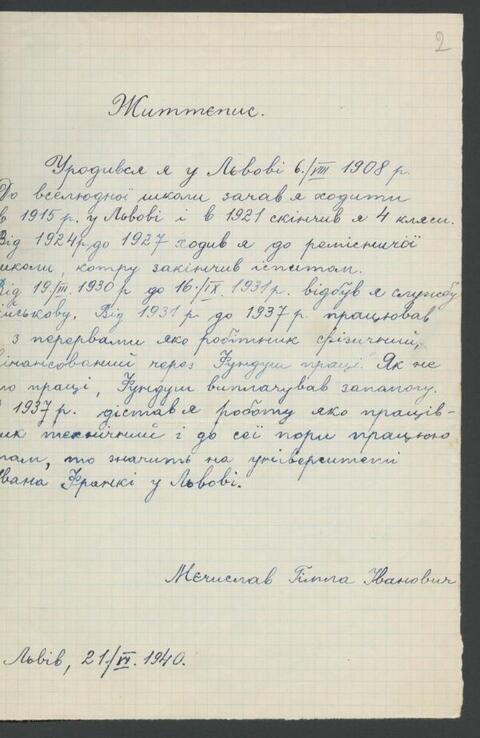 2
Життєпис.
Уродився я у Львові 6./VIII 1908 р.
До вселюдної школи зачав я ходити
в 1915 р. у Львові і в 1921 скінчив я 4 кляси.
Від 1924 р. до 1927 ходив я до ремісничої
школи, котру закінчив іспитом.
Від 19/III 1930 р до 16./IX 1931 р. відбув я службу
ійськову. Від 1931 р. до 1937 р. працював
з перервами яко робітник фізичний,
фінансований через Фундуш праці. Як не
було праці, Фундуш виплачував запомогу.
1937 р. дістав я роботу яко праців-
ник технічний і до сеї пори працюю
там, то значить на університеті
Івана Франкі у Львові.
Мечислав Гімпа Іванович
Львів, 21./VI. 1940.